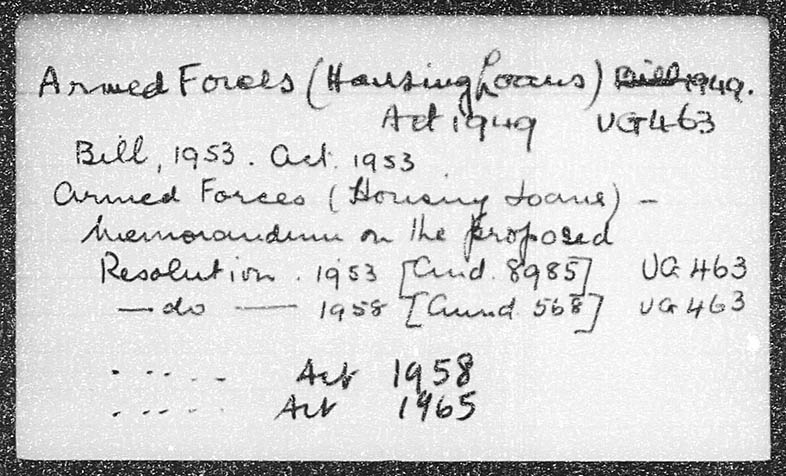 Armed Forces (Housing Loans) Bill 1949.
Act 1949 UG463
Bill, 1953. Act. 1953
Armed Forces (Housing Loans) -
Memorandum on the proposed
Resolution. 1953 [Cmd. 8985] UG 463
— do — 1958 [Cmnd. 568] UG 463
. . . . - Act 1958
. . . . - Act 1965